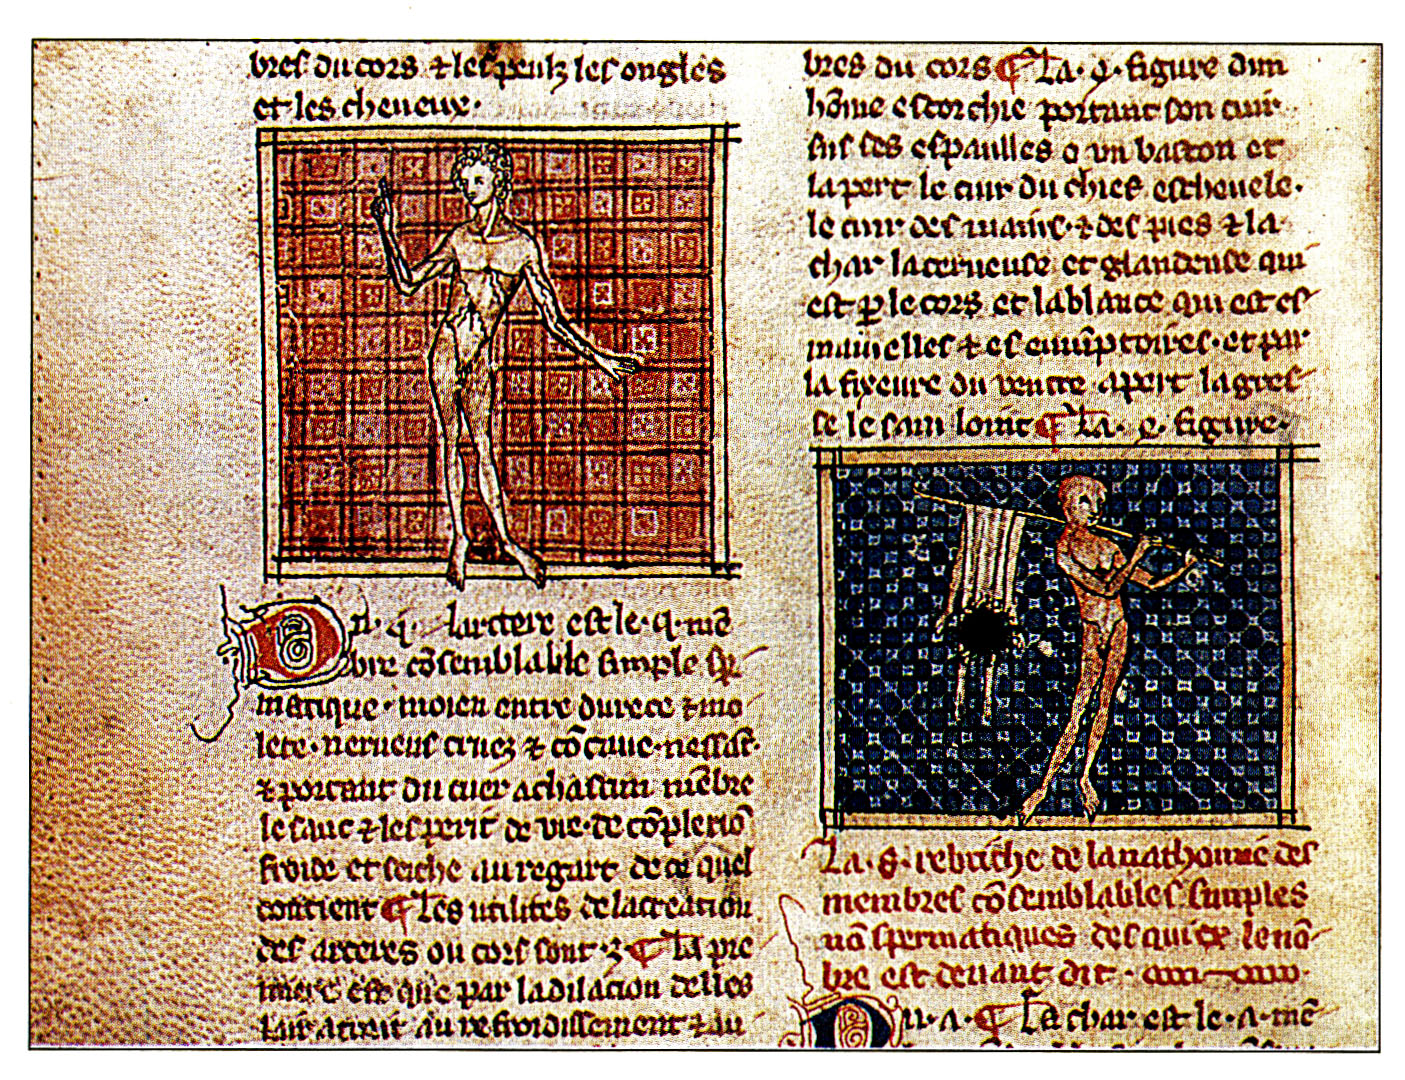 bres du cors ⁊ les peulz les ongles
et les cheueux.
n. q. lartere est le. q. mē
bre cōsemblable simple spr
matique. moien entre durece ⁊ mo
lece. nerueus cruez ⁊ cōcaue.
⁊ portant du cuer a chascun mēbre
le sanc ⁊ lesperit de vie. de cōplexiō
froide et seiche au regart de ce quel
contient ¶ Les utilites de la creation
des arteres ou cors sont .3. ¶ La pre
miere est que par la dilacion delles
lair atrait au refroidissement ⁊ du
bres du cors ¶ La. q. figure dun
hōme escorchie portant son cuir
sus ses espaulles o vn baston et
la pert le cuir du chief escheuele.
le cuir des mains. ⁊ des pies ⁊ la
char lacerneuse et glandeuse qui
est ꝑ le cors et la blance qui est es
mamelles ⁊ es emūptoires. et par
la fixeure du ventre apert la gres
se le sain loint ¶ La. e. figure.
La. 8. rebriche de la nathomie des
membres cōsemblables simples
nō spermatiques desquiex le nō
bre est deuant dit.
n. a. ¶ La char est le. a. mē